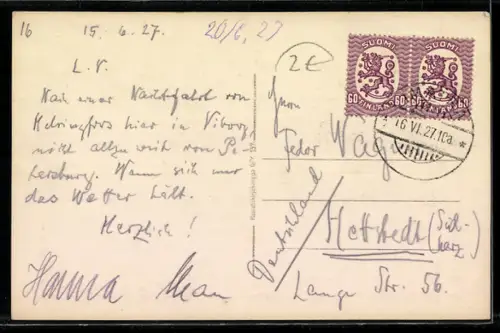 16 15. 6. 27. 20/6. 27
L. V.
Nach einer Nachtfahrt von
Helsingfors hier in Viborg,
nicht allzu weit von Pe-
tersburg. Wenn sich nur
das Wetter hält.
Herzlich!
Hanna
2€
SUOMI SUOMI
60 FINLAND 60 60 FINLAND 60
16 VI. 27. 10a.
Herrn
Fedor Wagner
Hettstedt (Süd-
harz)
Lange Str. 56.
Deutschland